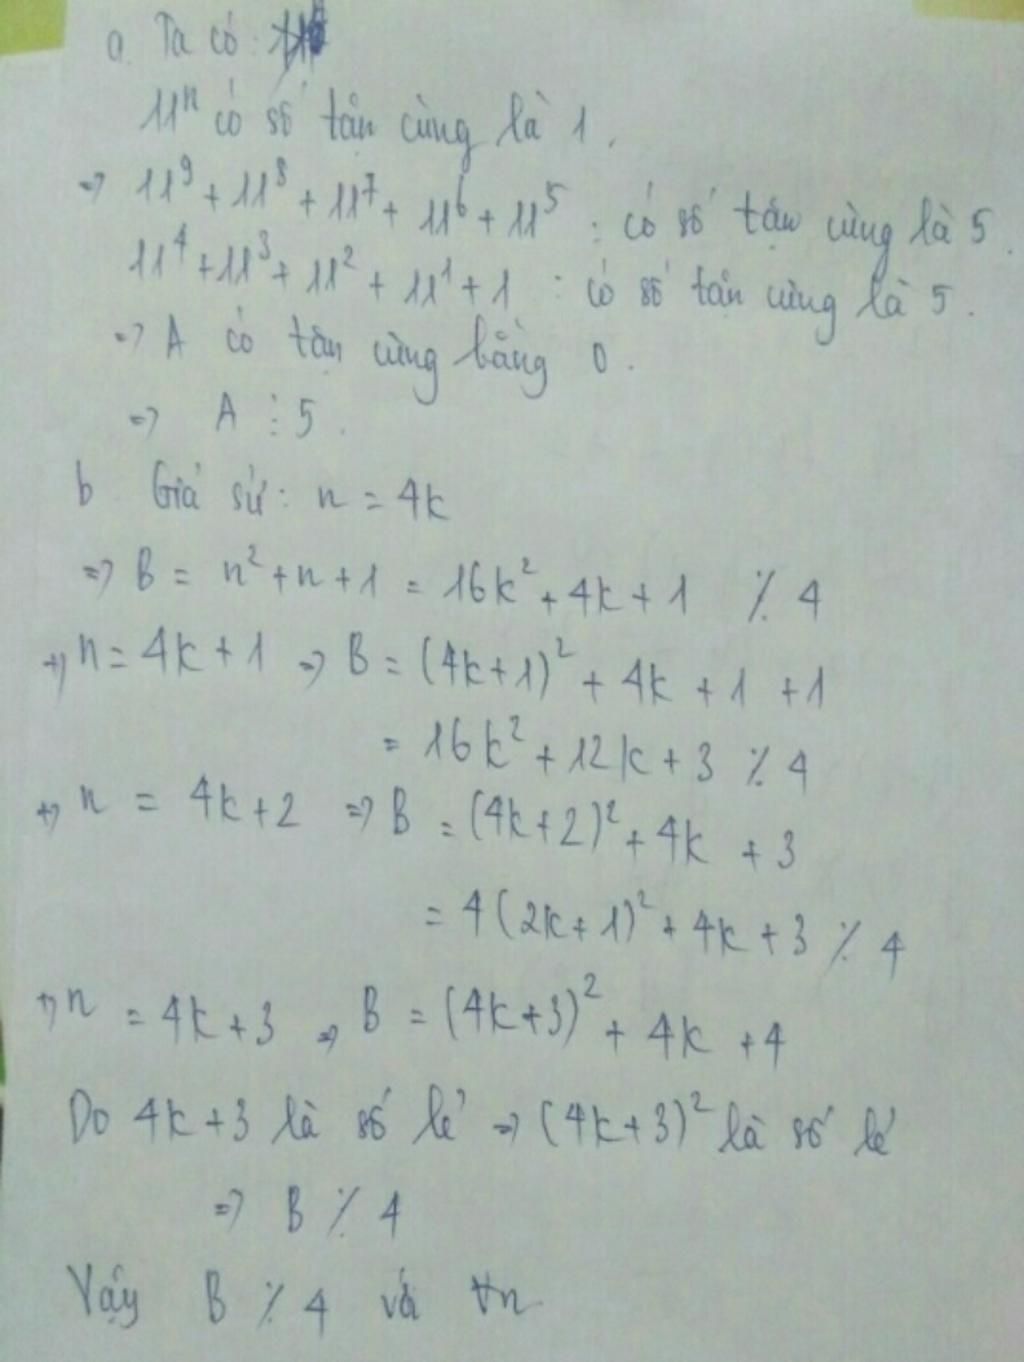 a. Ta có:
11ⁿ có số tận cùng là 1.
=> 11⁹ + 11⁸ + 11⁷ + 11⁶ + 11⁵ : có số tận cùng là 5
11⁴ + 11³ + 11² + 11¹ + 1 : có số tận cùng là 5.
=> A có tận cùng bằng 0.
=> A ⋮ 5.
b Giả sử: n = 4k
=> B = n² + n + 1 = 16k² + 4k + 1 ⋮̸ 4
+, n = 4k + 1 => B = (4k+1)² + 4k + 1 + 1
= 16k² + 12k + 3 ⋮̸ 4
+, n = 4k+2 => B = (4k+2)² + 4k + 3
= 4(2k+1)² + 4k + 3 ⋮̸ 4
+, n = 4k+3 => B = (4k+3)² + 4k + 4
Do 4k+3 là số lẻ => (4k+3)² là số lẻ
=> B ⋮̸ 4
Vậy B ⋮̸ 4 với ∀n